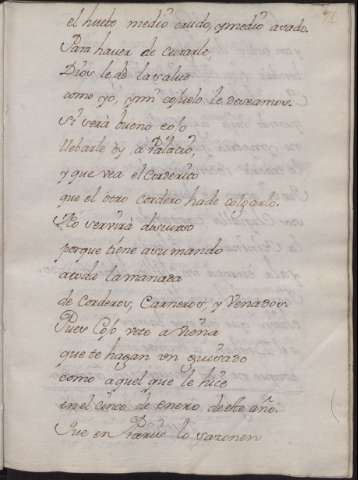 71
el huebo medio crudo, y medio asado.
Para haver de curarle,
Dios le de la salud
como yo, y mi la deseamos.
Si será bueno
llebarle oy a Palacio,
y que vea el Corderito
que el otro cordero ha de colgarlo.
No servirá
porque tiene a su mando
toda la manada
de Corderos, Carneros, y Venados.
Pues vete a Viena
que te hagan un guisado
como aquel que le hice
en el cinco de Enero de este año.
Que en lo sazonen